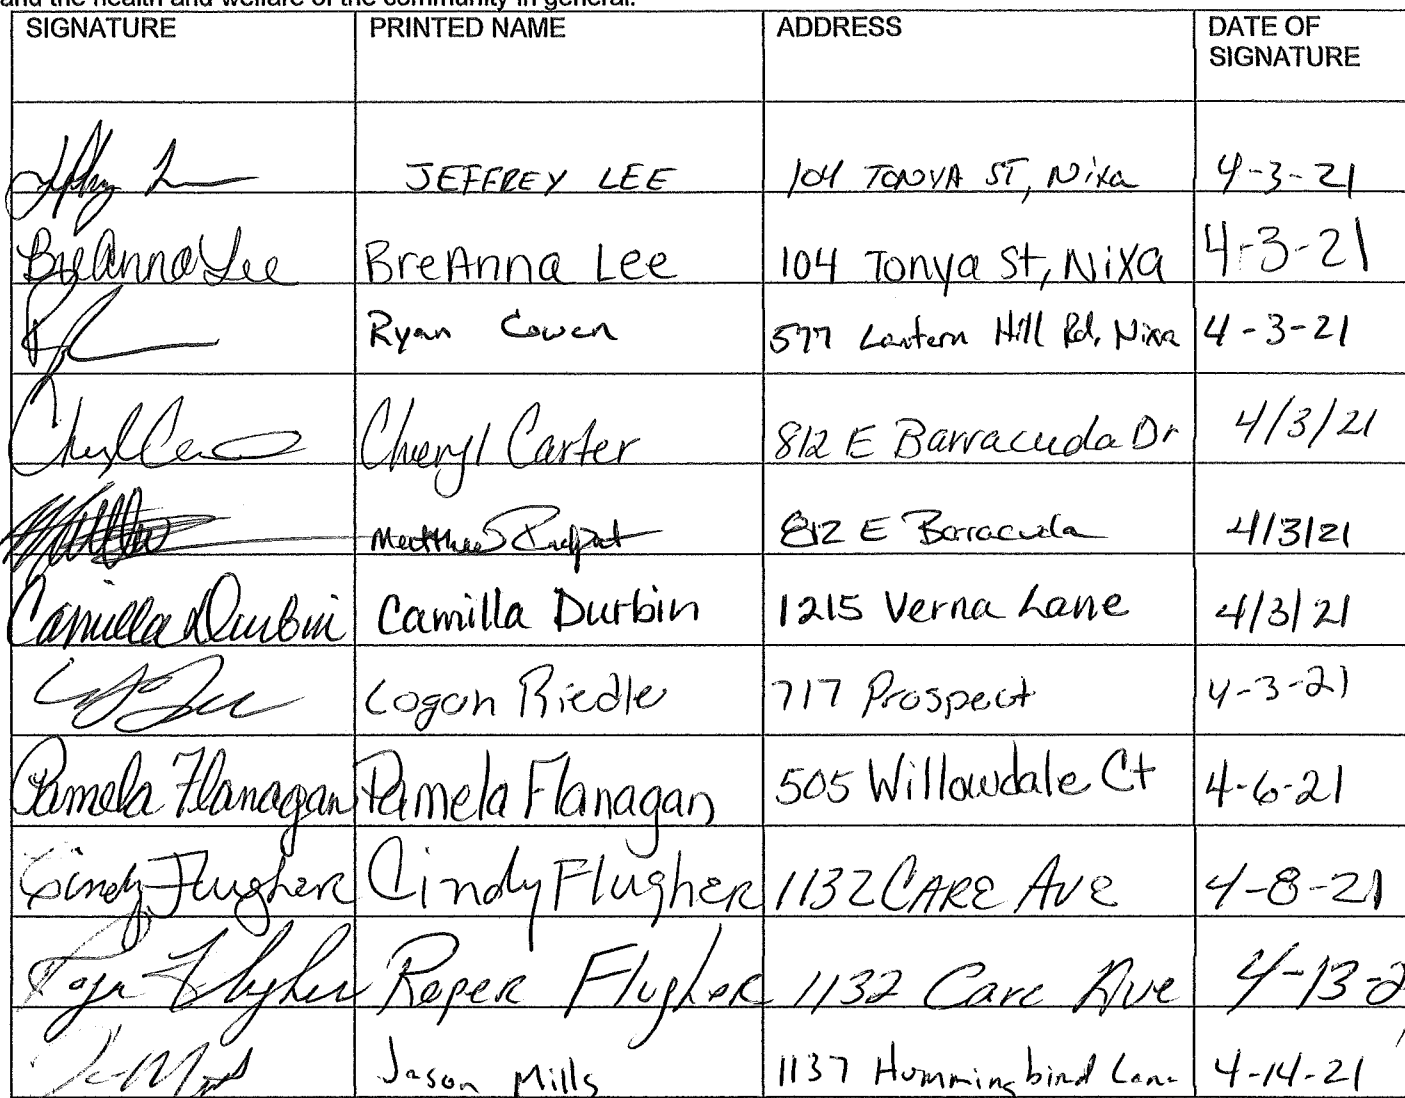 and the health and welfare of the community in general.
SIGNATURE PRINTED NAME ADDRESS DATE OF SIGNATURE
JEFFREY LEE 104 TONYA ST, Nixa 4-3-21
BreAnna Lee BreAnna Lee 104 Tonya St, Nixa 4-3-21
Ryan Cowen 577 Lantern Hill Rd, Nixa 4-3-21
Cheryl Carter 812 E Barracuda Dr 4/3/21
Matthew 812 E Barracuda 4/3/21
Camilla Durbin Camilla Durbin 1215 Verna Lane 4/3/21
Logan Riedle 717 Prospect 4-3-21
Pamela Flanagan Pamela Flanagan 505 Willowdale Ct 4-6-21
Cindy Flugher Cindy Flugher 1132 CARE AVE 4-8-21
Flugher 1132 Care Ave 4-13-2
Jason Mills 1137 Hummingbird Lane 4-14-21